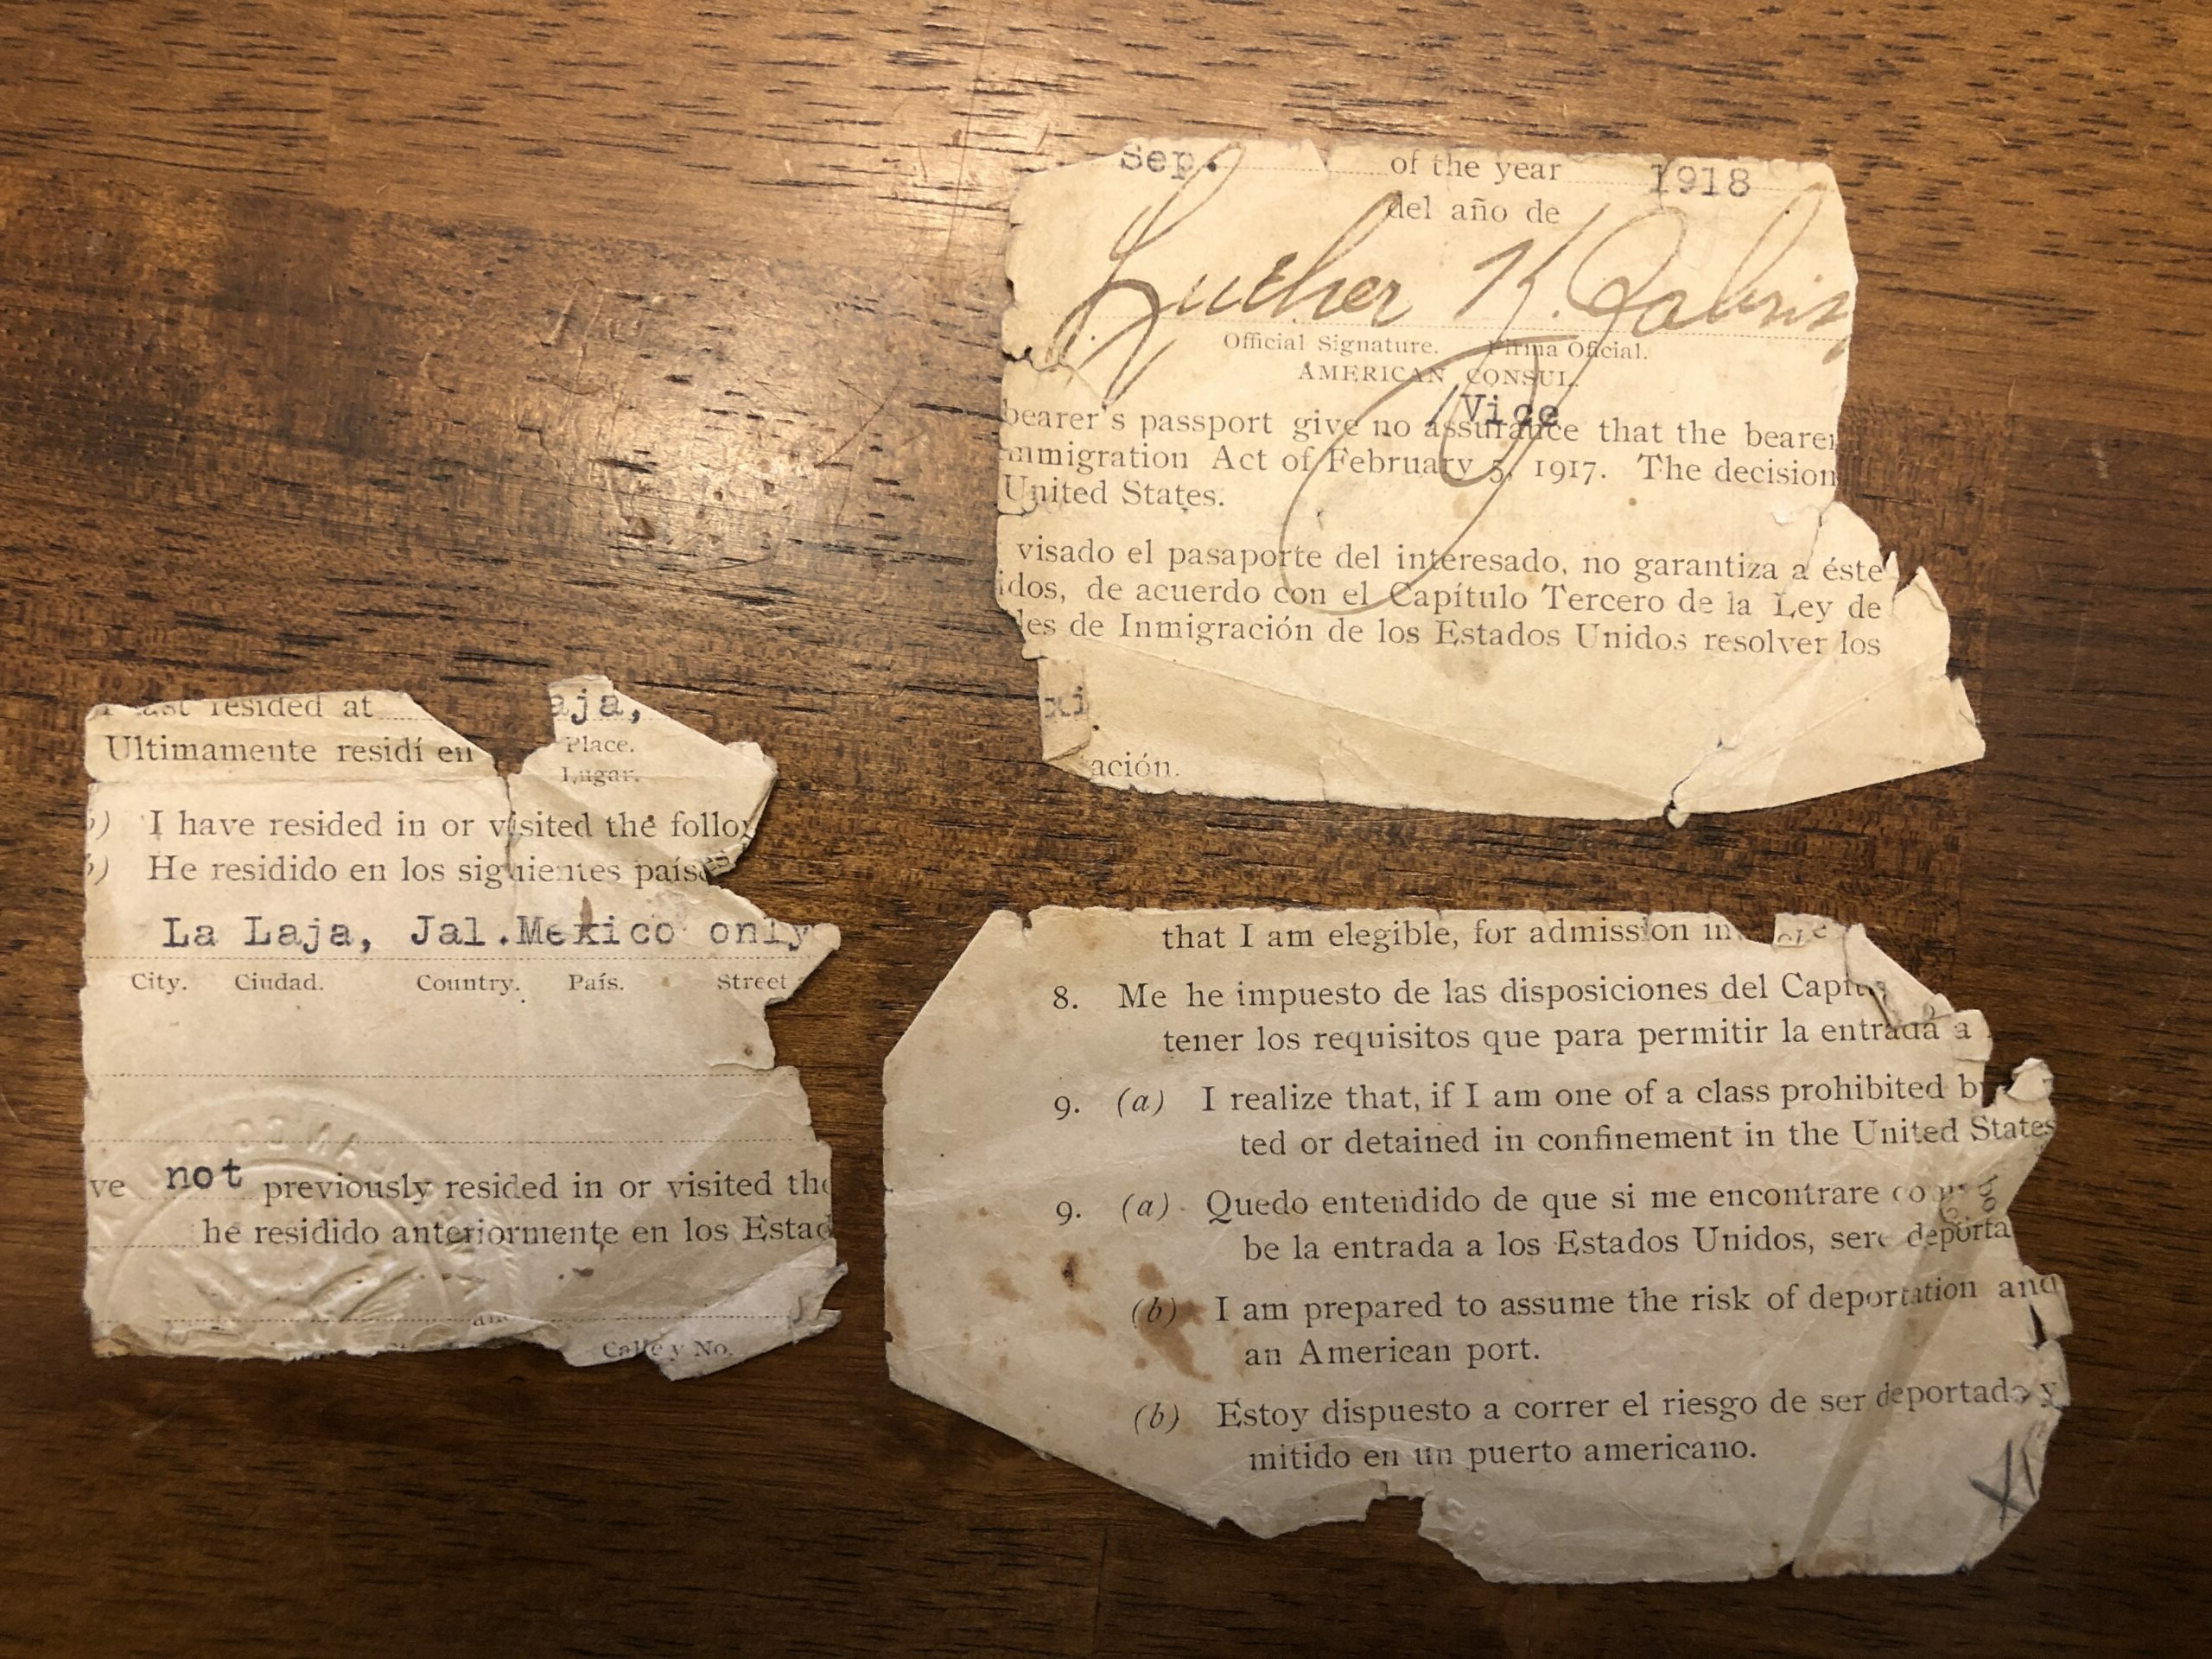 Sep. of the year 1918
del año de
Luther K.
Official Signature. Firma Oficial.
AMERICAN CONSUL.
/Vice
bearer's passport give no assurance that the bearer
mmigration Act of February 5, 1917. The decision
United States.
visado el pasaporte del interesado, no garantiza a éste
idos, de acuerdo con el Capítulo Tercero de la Ley de
les de Inmigración de los Estados Unidos resolver los
xi
ación.
last resided at aja,
Ultimamente residí en Place.
Lugar.
) I have resided in or visited the follo
) He residido en los siguientes país
La Laja, Jal.Mexico only
City. Ciudad. Country. País. Street
ve not previously resided in or visited the
he residido anteriormente en los Estad
Calle y No.
that I am elegible, for admission in
8. Me he impuesto de las disposiciones del Capít
tener los requisitos que para permitir la entrada a
9. (a) I realize that, if I am one of a class prohibited b
ted or detained in confinement in the United States
9. (a) Quedo entendido de que si me encontrare co
be la entrada a los Estados Unidos, seré deporta
(b) I am prepared to assume the risk of deportation and
an American port.
(b) Estoy dispuesto a correr el riesgo de ser deportado y
mitido en un puerto americano.